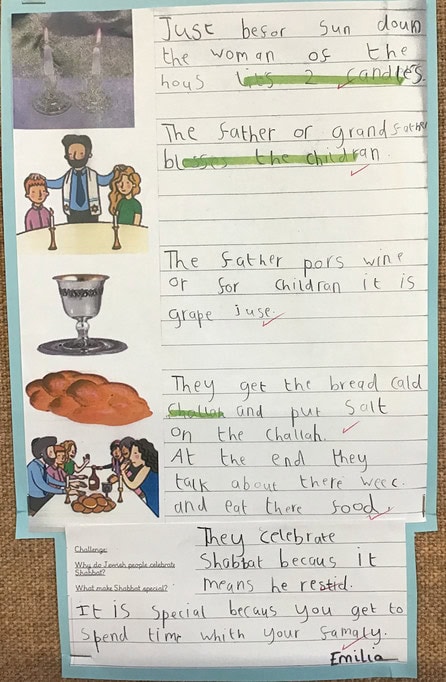 Just befor sun doun
the woman of the
hous lits 2 candles.
The father or grandfather
blesses the childran.
The father pors wine
or for childran it is
grape juse.
They get the bread cald
challah and put salt
on the challah.
At the end they
talk about there weec.
and eat there food.
Challenge:
Why do Jewish people celebrate
Shabbat?
What make Shabbat special?
They celebrate
Shabbat becaus it
means he rested.
It is special becaus you get to
spend time whith your famaly.
Emilia